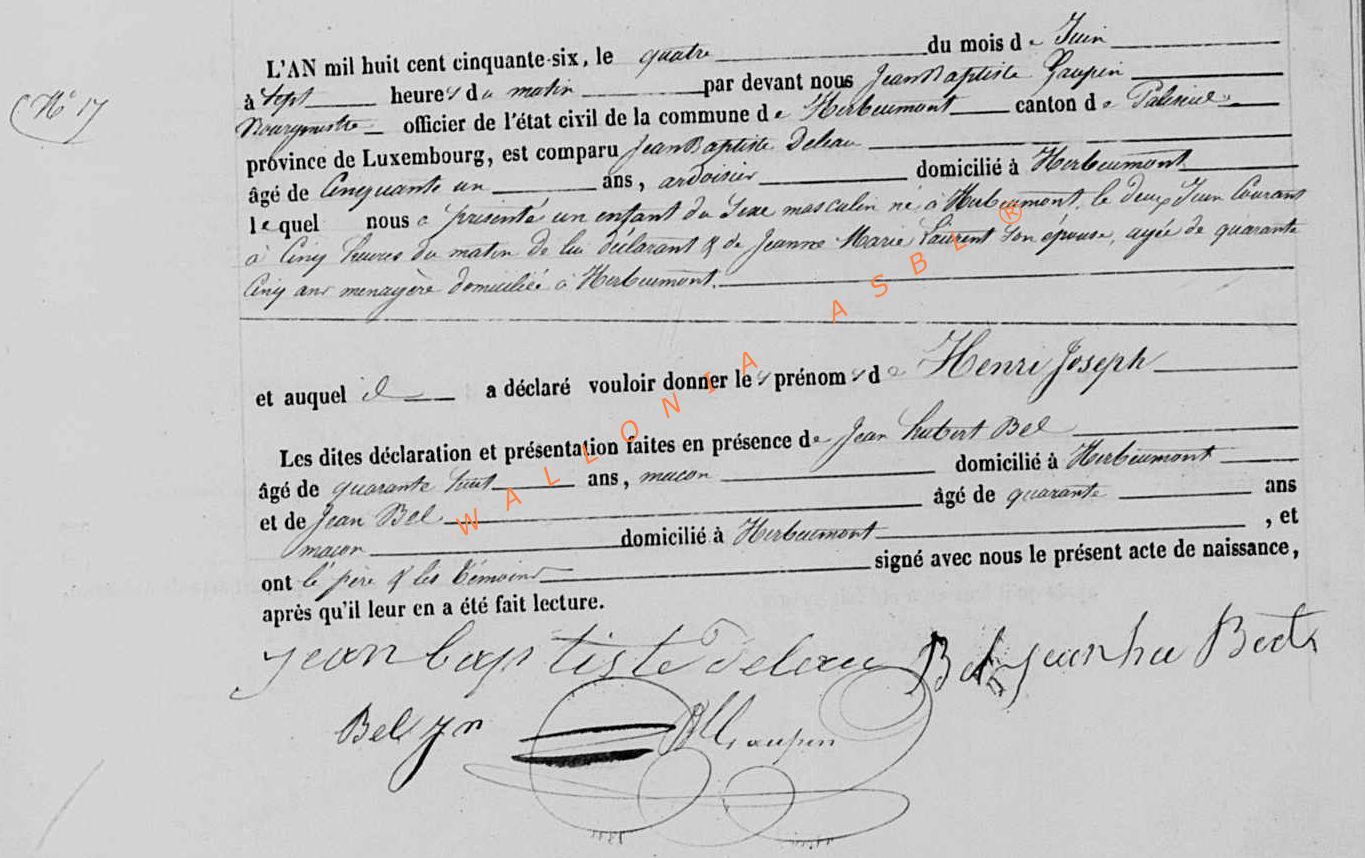 N° 17
L'AN mil huit cent cinquante-six, le quatre du mois de Juin
à Sept heures du matin par devant nous Jean Baptiste Gaupin
Bourgmestre officier de l'état civil de la commune de Herbeumont canton de Paliseul
province de Luxembourg, est comparu Jean Baptiste Deleau
âgé de Cinquante un ans, ardoisier domicilié à Herbeumont
lequel nous a présenté un enfant du Sexe masculin né à Herbeumont, le deux Juin Courant
à Cinq heures du matin de lui déclarant & de Jeanne Marie Laurent Son épouse, agée de quarante
Cinq ans menagère domiciliée à Herbeumont.
et auquel il a déclaré vouloir donner les prénoms de Henri Joseph
Les dites déclaration et présentation faites en présence de Jean hubert Bel
âgé de quarante huit ans, macon domicilié à Herbeumont
et de Jean Bel âgé de quarante ans
macon domicilié à Herbeumont , et
ont le père & les témoins signé avec nous le présent acte de naissance,
après qu'il leur en a été fait lecture.
jean baptiste deleau Bel jean hu
Bel jn Gaupin
WALLONIA ASBL ®